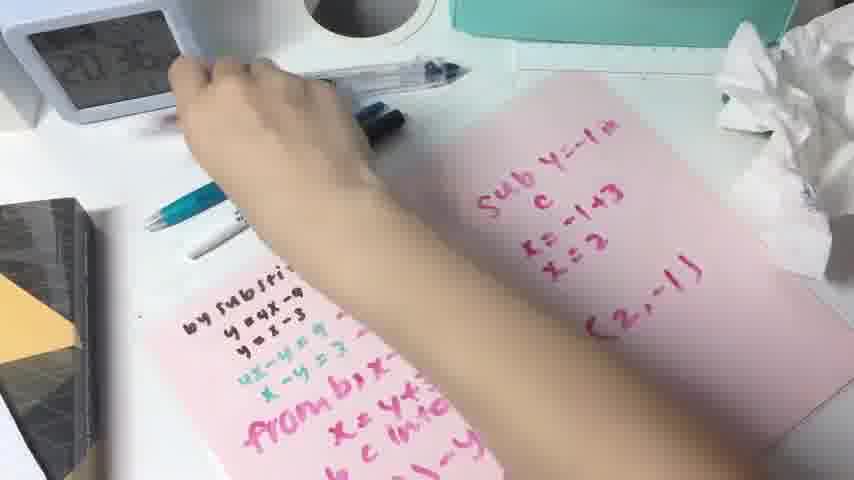 20:36
by substi
y = 4x-9
y = x-3
4x-y = 9
x-y = 3
from b, x-
x = y+3
b c into
) -y
sub y=-1 in
c
x = -1+3
x = 2
(2,-1)